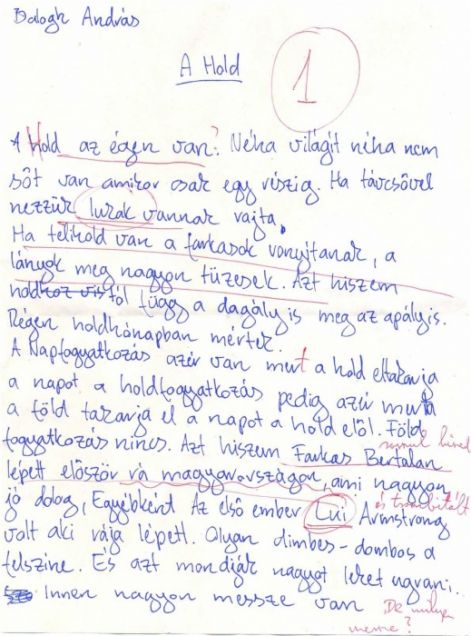 Balogh András
A Hold
1
A Hold az égen van? Néha világít néha nem
sőt van amikor csak egy részig. Ha távcsővel
nezzük lukak vannak rajta.
Ha telihold van a farkasok vonyítanak, a
lányok meg nagyon tüzesek. Azt hiszem
függ a dagály is meg az apályis.
Régen holdhónapban mértek.
A Napfogyatkozás azér van mert a hold eltakarja
a napot a holdfogyatkozás pedig azér mert
a föld takarja el a napot a hold elől. Föld
fogyatkozás nincs. Azt hiszem Farkas Bertalan
lépett először rá magyarországon, ami nagyon
jó dolog. Egyébként Az első ember Lui Armstrong
volt aki rája lépett. Olyan dimbes-dombos a
felszine. És azt mondják nagyot lehet ugrani..
Innen nagyon messze van De milyen
messze?